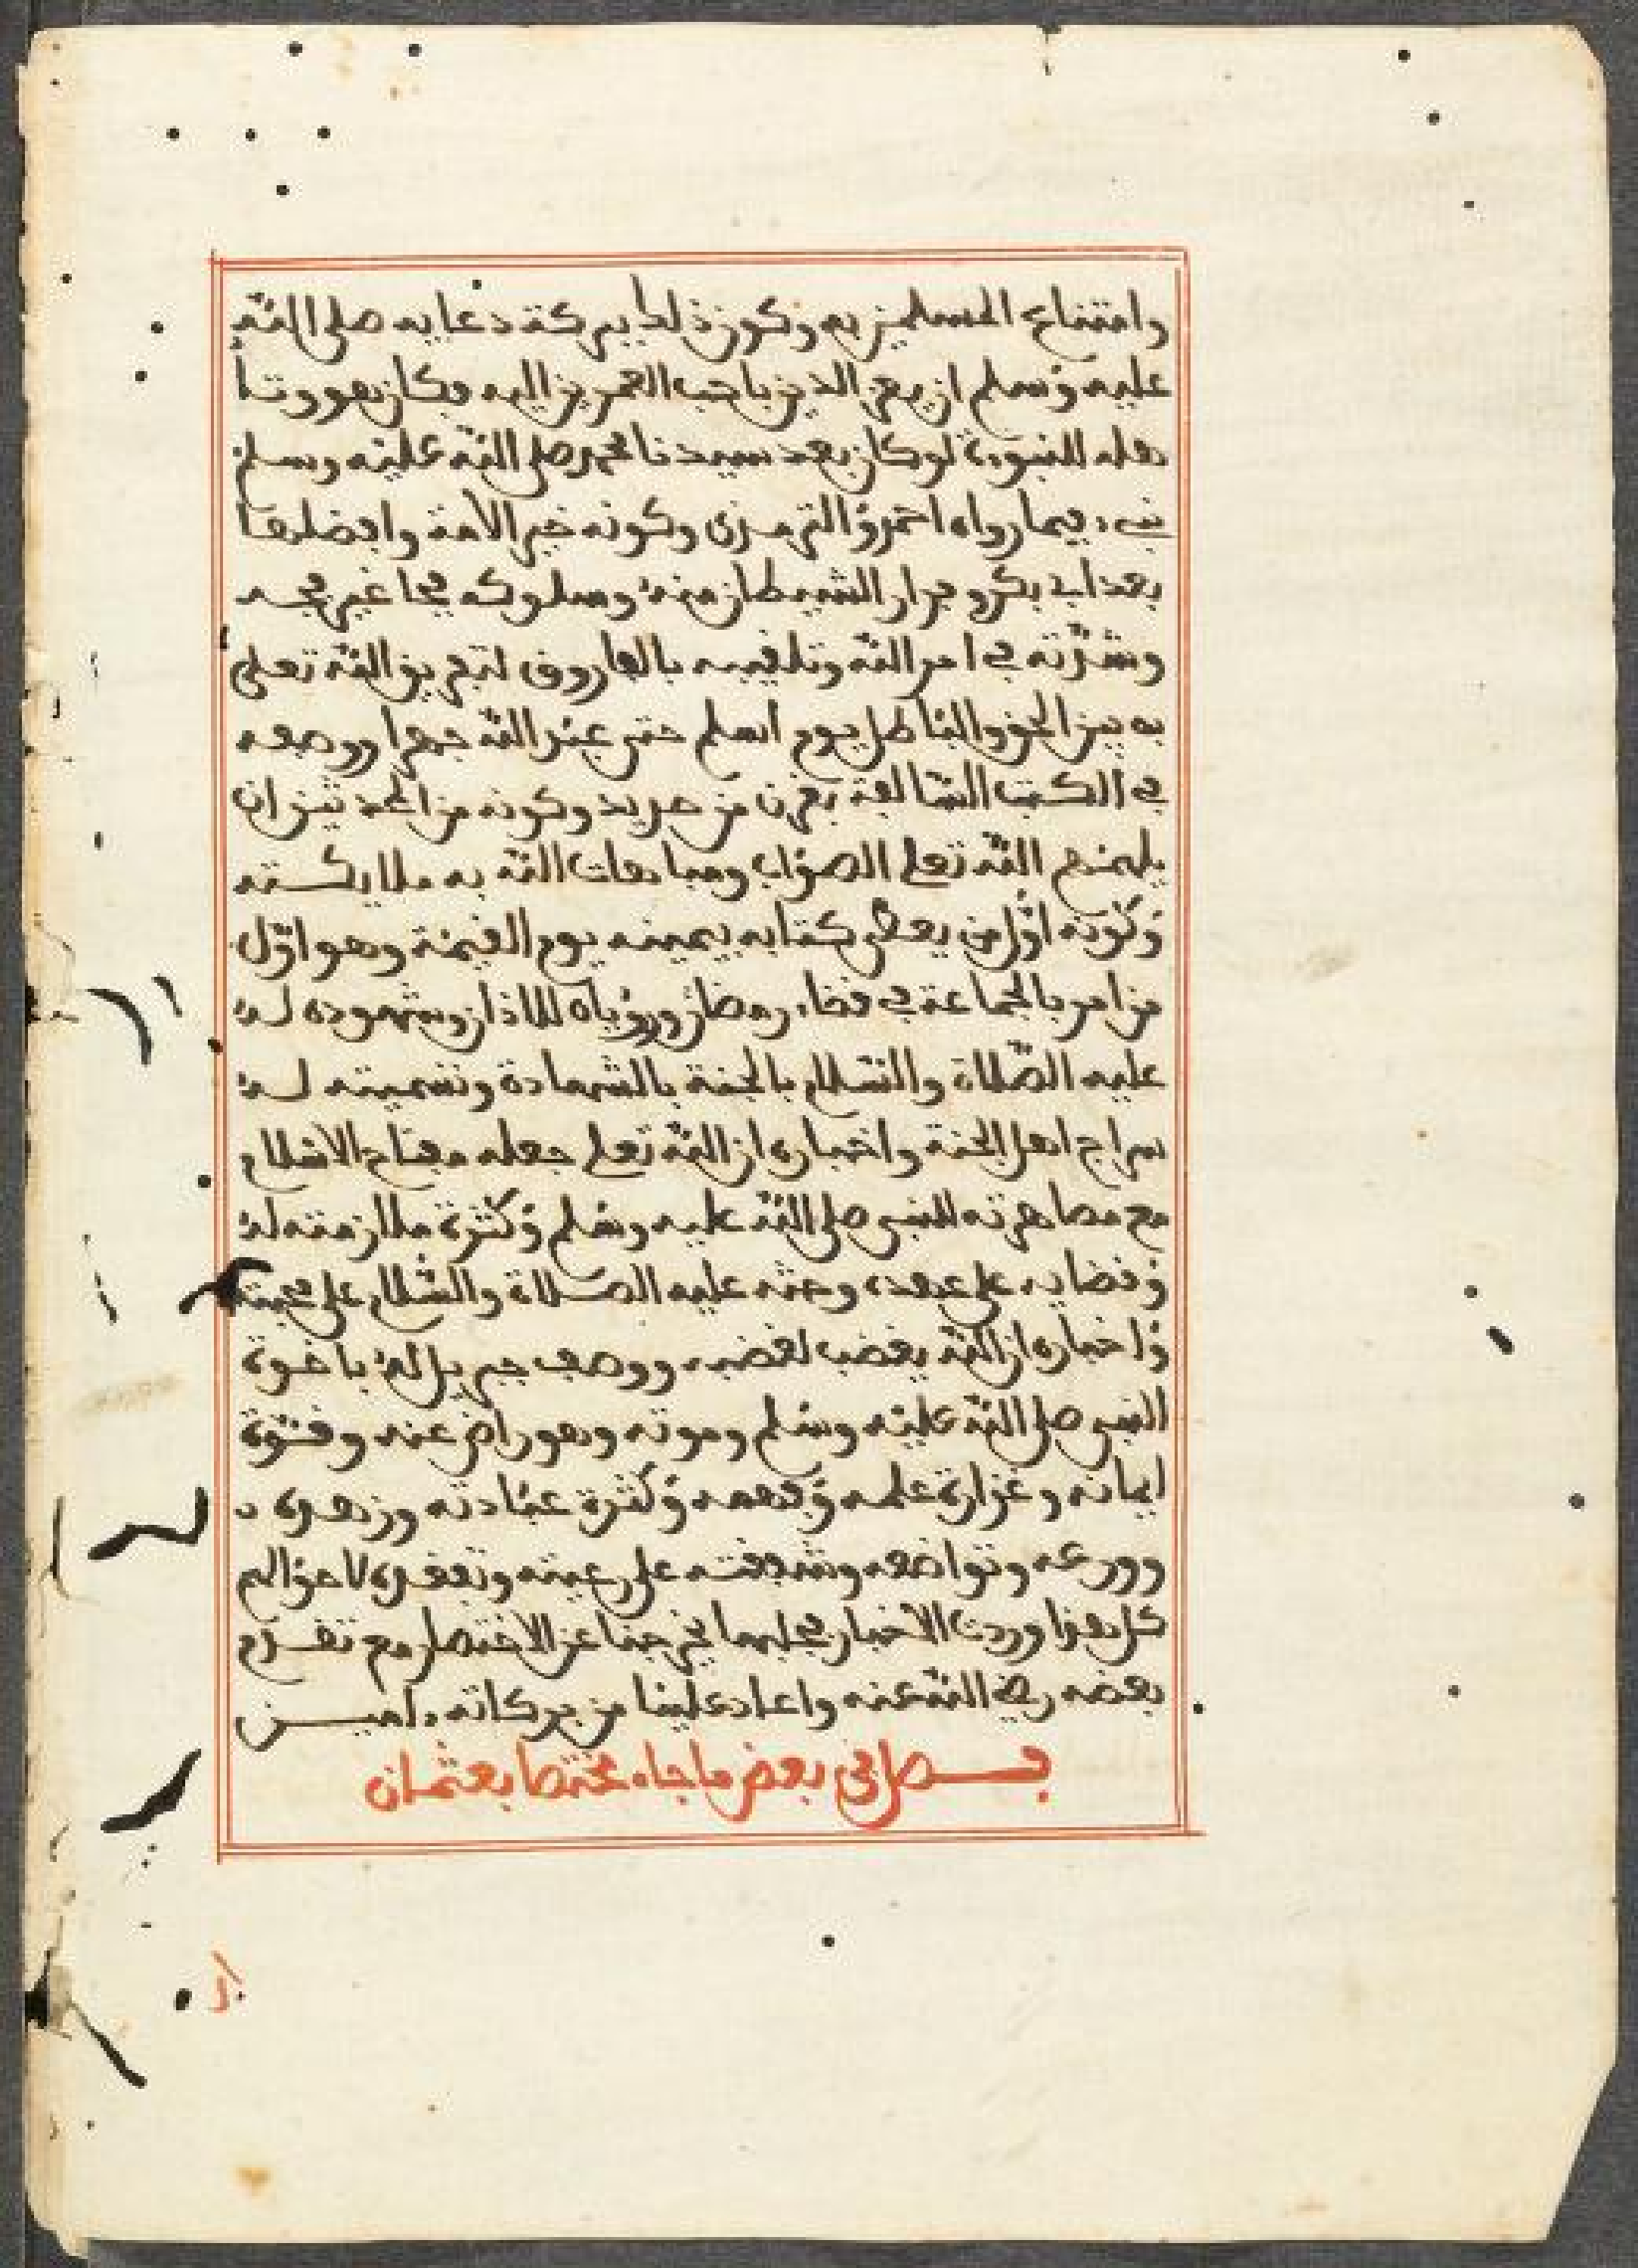 وامتناع المسلمين به وكون ذلك ببركة دعايه صلى الله
عليه وسلم ان يعز الدين باحب العمرين اليه وكان هو وتا
هله للنبوءة لو كان بعد سيدنا محمد صلى الله عليه وسلم
نبيء فيما رواه احمد والترمذي وكونه خير الامة وافضلها
بعد ابي بكر وفرار الشيطان منه وسلوكه فجا غير فجه
وشدته في امر الله وتلقيبه بالفاروق لتفريق الله تعلى
به بين الحق والباطل يوم اسلم حتى عبد الله جهرا ووصفه
في الكتب السالفة بقرن من حديد وكونه من المحدثين ان
يلهمهم الله تعلى الصواب ومباهات الله به ملايكته
وكونه اول من يعطى كتابه بيمينه يوم القيمة وهو اول
من امر بالجماعة في قضاء رمضان ورؤياه للاذان وشهوده له
عليه الصلاة والسلام بالجنة بالشهادة وتسميته له
سراج اهل الجنة واخباره ان الله تعلى جعله مفتاح الاسلام
مع مصاهرته للنبي صلى الله عليه وسلم وكثرة ملازمته له
وقضايه على عهده وحثه عليه الصلاة والسلام على محبته
واخباره ان الله يغضب لغضبه ووصف جبريل له باخوة
النبي صلى الله عليه وسلم وموته وهو راض عنه وقوة
ايمانه وغزارة علمه وفهمه وكثرة عبادته وزهده
وورعه وتواضعه وشفقته على رعيته وتفقده لاحوالهم
كل هذا وردت الاخبار يخرجنا عن الاختصار مع تقدم
بعضه رضي الله عنه واعاد علينا من بركاته ءاميـن
فـصل في بعض ما جاء مختصا بعثمان